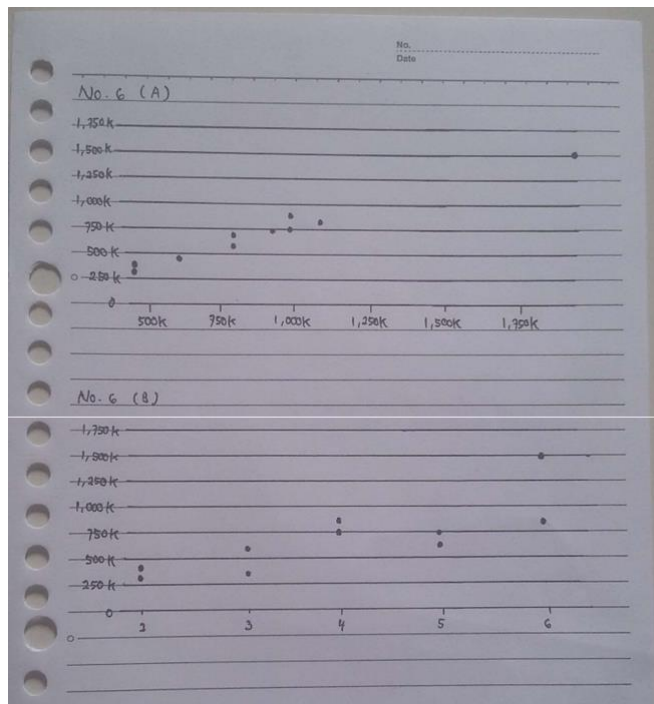 No.
Date
No. 6 (A)
1,750k
1,500k
1,250k
1,000k
750k
500k
250k
0
500k 750k 1,000k 1,250k 1,500k 1,750k
No. 6 (B)
1,750k
1,500k
1,250k
1,000k
750k
500k
250k
0
2 3 4 5 6